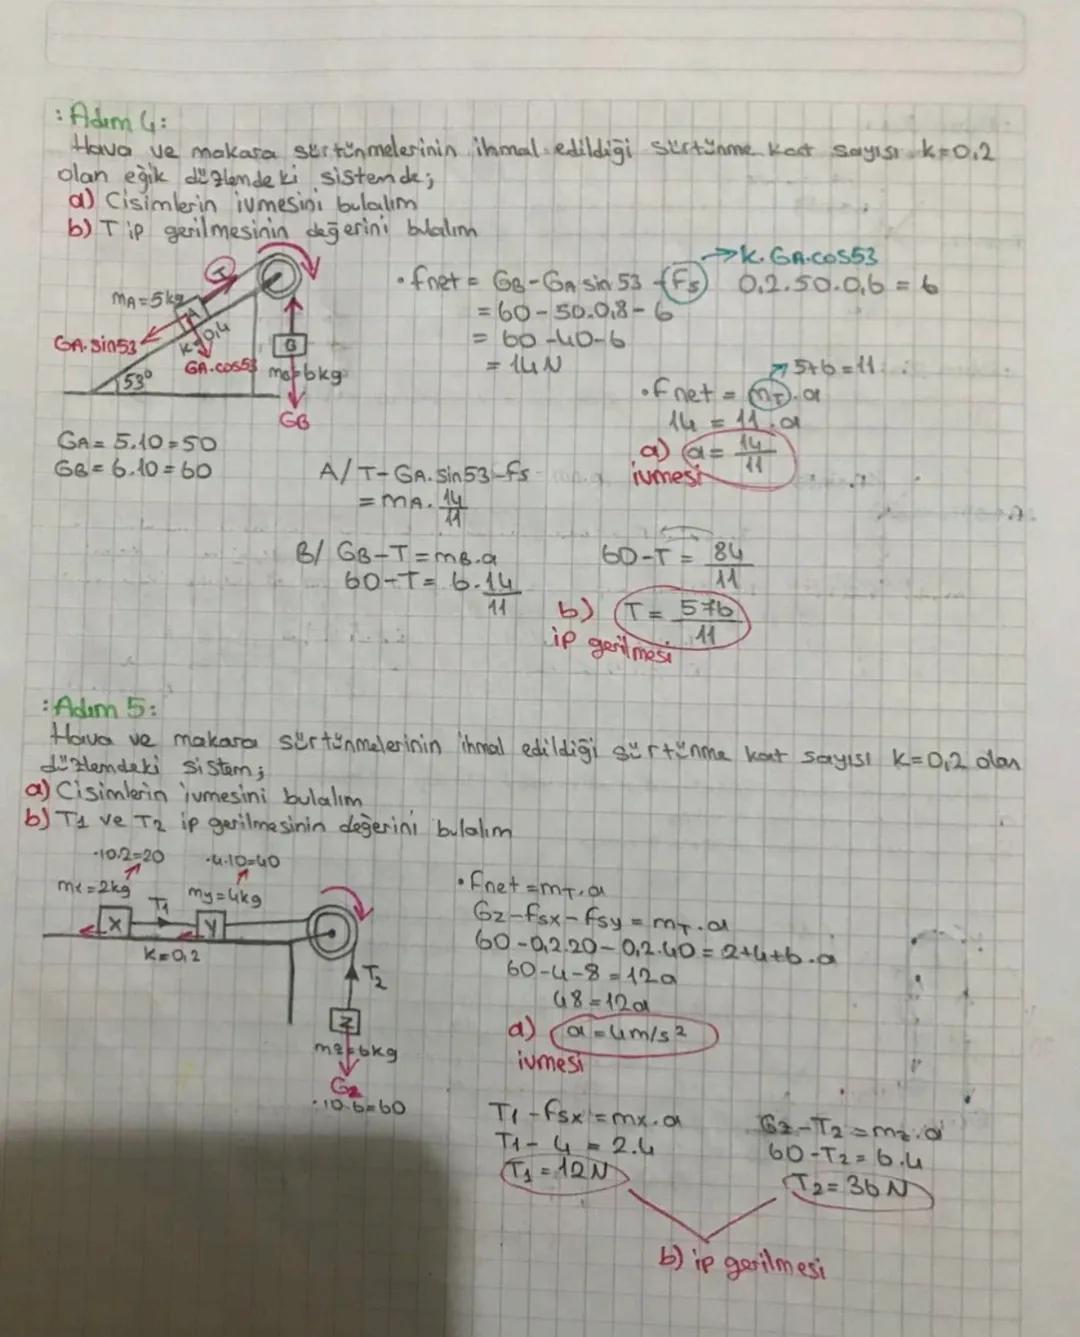 : Adım 4:
Hava ve makara sürtünmelerinin ihmal edildiği sürtünme kat sayısı k=0,2
olan eğik düzlemdeki sistemde;
a) Cisimlerin ivmesini bulalım
b) T ip gerilmesinin değerini bulalım
T
mA=5kg
A
GA.sin53
k=0,4
GA.cos53
53°
B
mB=6kg
GB
GA= 5.10=50
GB= 6.10=60
• fnet = GB-GA sin 53 - fs → k.GA.cos53
0,2.50.0,6 = 6
= 60-50.0,8-6
= 60-40-6
= 14N
5+6=11
• fnet = mT.a
14 = 11.a
a) a= 14/11
ivmesi
A/ T-GA.sin53-fs
= mA. 14/11
B/ GB-T=mB.a
60-T= 6.14/11
60-T = 84/11
b) T= 576/11
ip gerilmesi
: Adım 5:
Hava ve makara sürtünmelerinin ihmal edildiği sürtünme kat sayısı k=0,2 olan
düzlemdeki sistem;
a) Cisimlerin ivmesini bulalım
b) T1 ve T2 ip gerilmesinin değerini bulalım
·10.2=20
·4.10=40
mx=2kg
T1
my=4kg
X
Y
k=0,2
T2
Z
mz=6kg
Gz
·10.6=60
• Fnet=mT.a
Gz-fsx-fsy = mT.a
60-0,2.20-0,2.40=2+4+6.a
60-4-8=12a
48=12a
a) a=4m/s²
ivmesi
T1-fsx=mx.a
T1-4=2.4
T1=12N
Gz-T2=mz.a
60-T2=6.4
T2=36N
b) ip gerilmesi